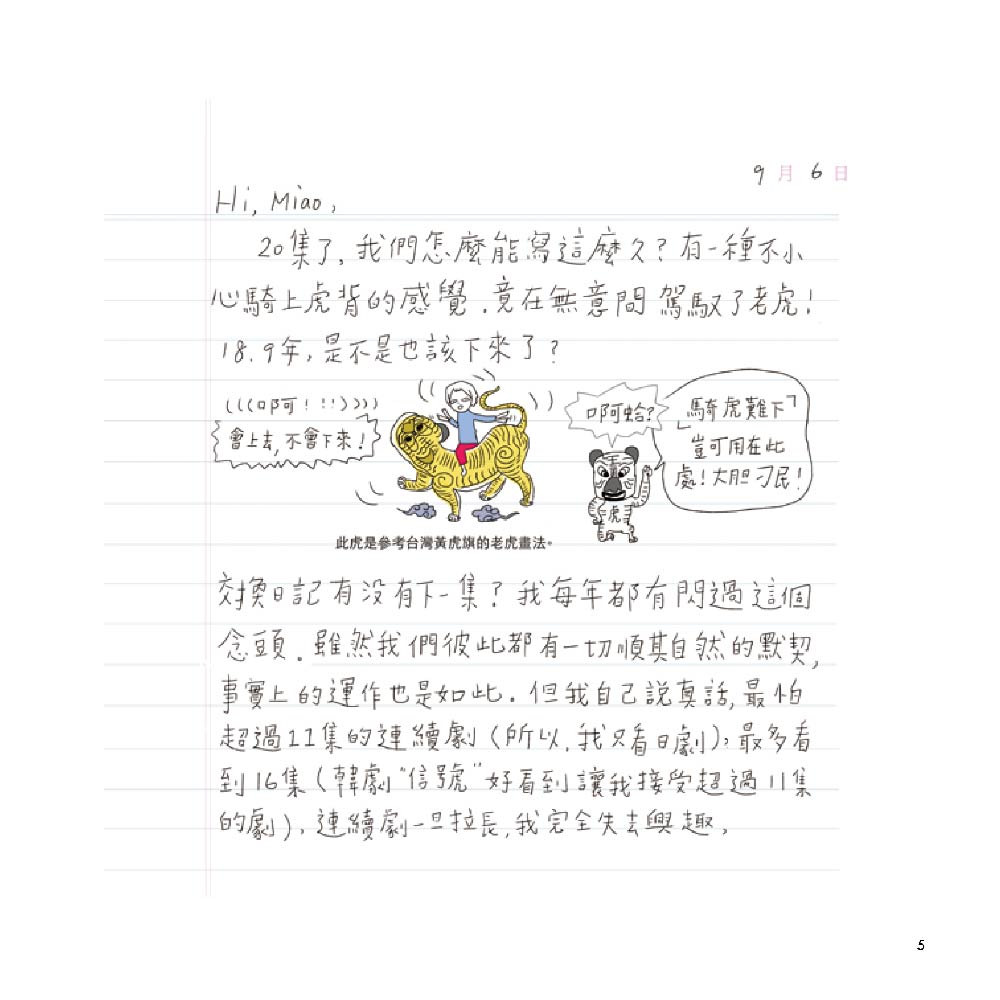 9月6日
Hi, Miao,
20集了,我們怎麼能寫這麼久?有一種不小
心騎上虎背的感覺.竟在無意間駕馭了老虎!
18.9年,是不是也該下來了?
(((啊!!!)))
會上去,不會下來!
啊蛤?
「騎虎難下」
豈可用在此
處!大胆刁民!
虎
此虎是參考台灣黃虎旗的老虎畫法。
交換日記有沒有下一集?我每年都有閃過這個
念頭.雖然我們彼此都有一切順其自然的默契,
事實上的運作也是如此.但我自己說真話,最怕
超過11集的連續劇(所以,我只看日劇),最多看
到16集(韓劇"信號"好看到讓我接受超過11集
的劇),連續劇一旦拉長,我完全失去興趣,
5